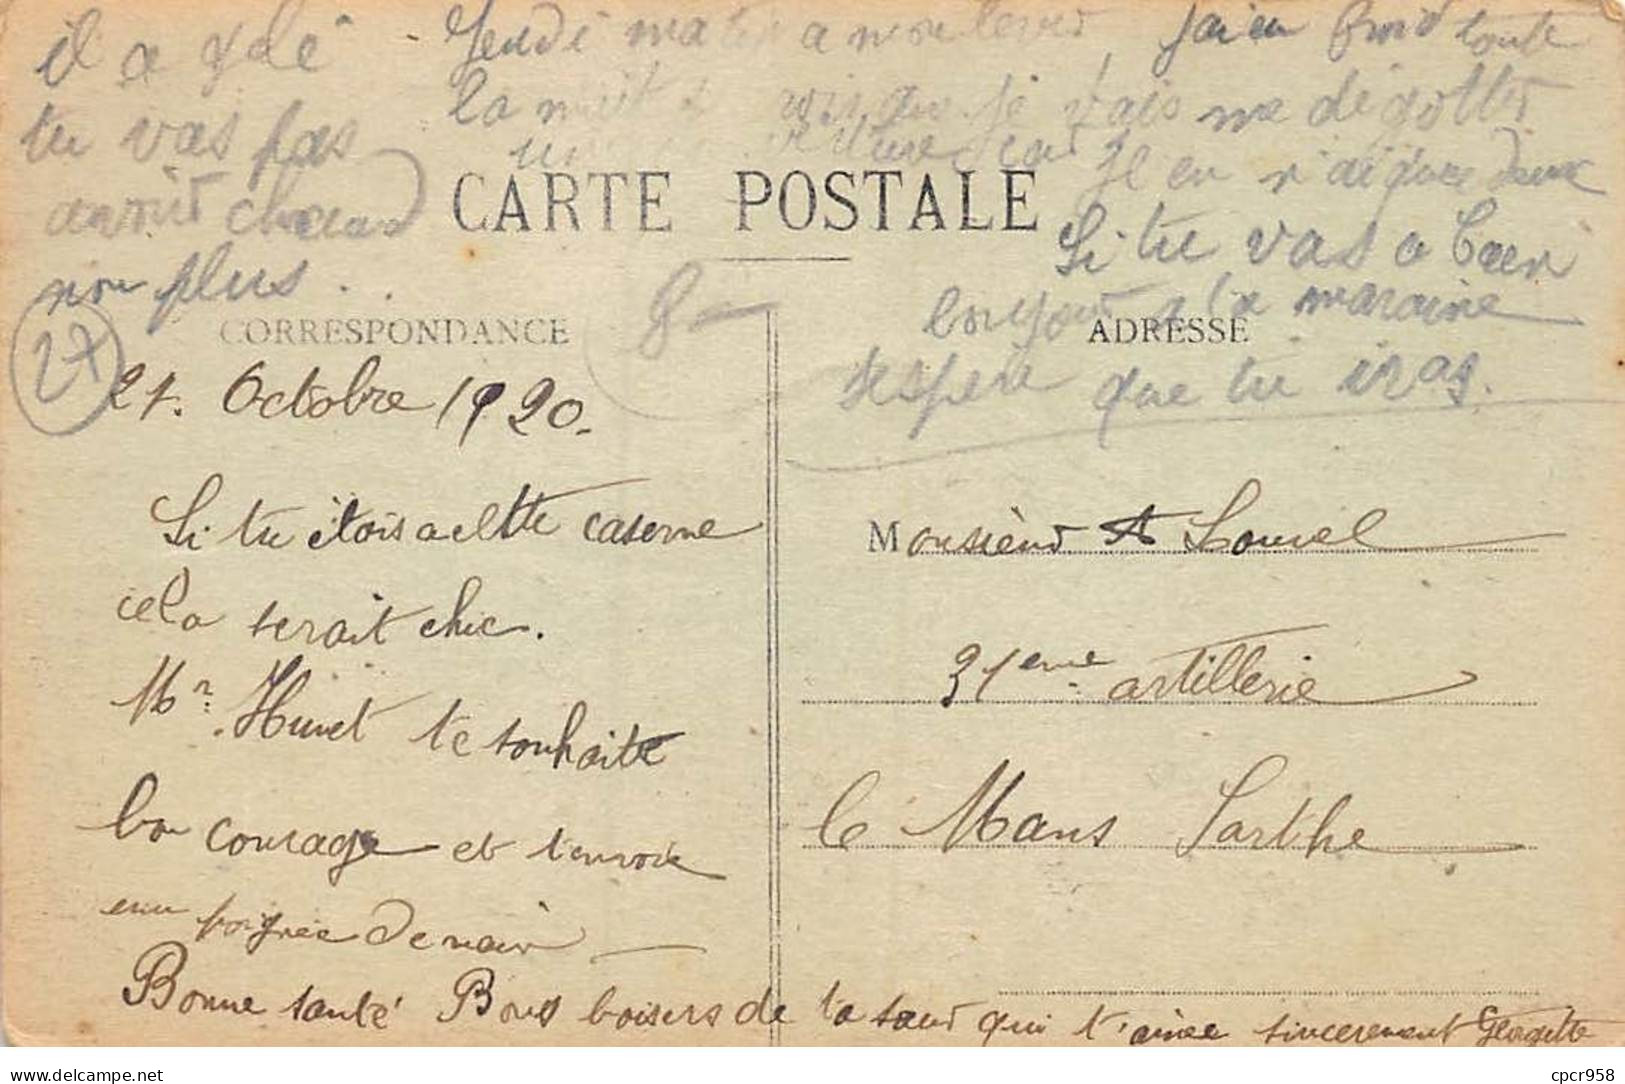 il a gelé
tu vas pas
avoir chaud
non plus.
Jeudi matin a mon lever j'ai eu froid toute
la nuit je vais me dégotter
Il en n'a que deux
Si tu vas a Caen
bonjour a la maraine
J'espere que tu iras.
CARTE POSTALE
CORRESPONDANCE
ADRESSE
27
8
21. Octobre 1920.
Si tu étois a cette caserne
cela serait chic.
Mr. Huvet te souhaite
bon courage et t'envoie
une poignée de main
Bonne santé Bons baisers de ta sœur qui t'aime sincerement Georgette
Monsieur A Louvel
31eme artillerie
le Mans Sarthe
cpcr958